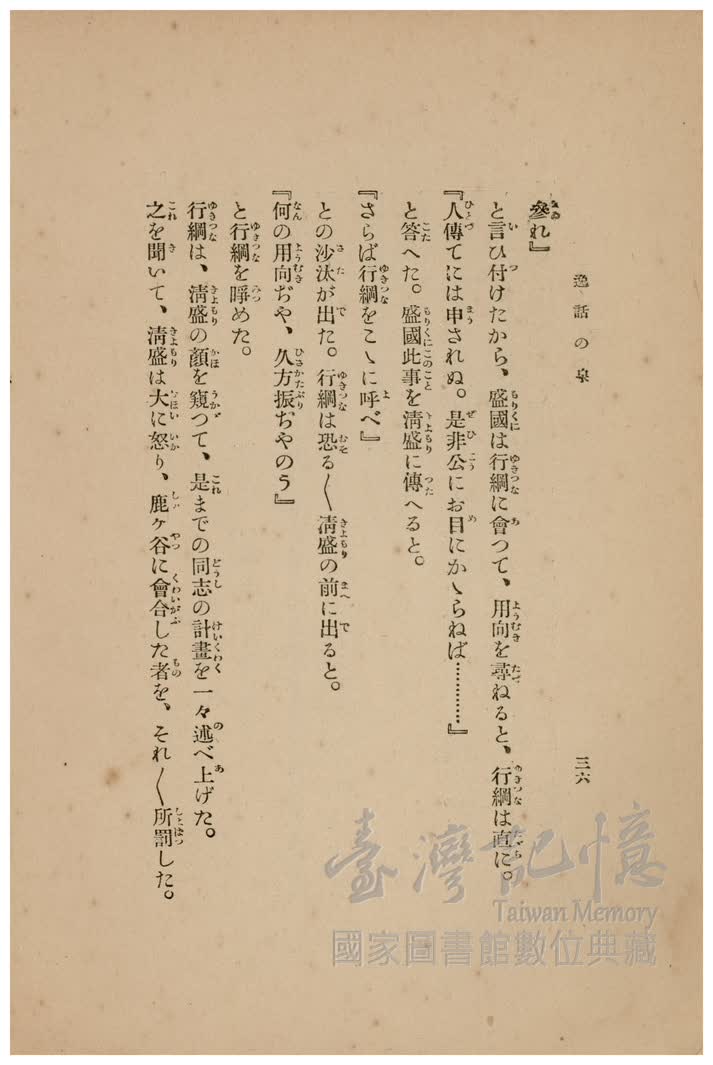 逸話の泉
三六
參れ』
と言ひ付けたから、盛國は行綱に會つて、用向を尋ねると、行綱は直に。
『人傳てには申されぬ。是非公にお目にかゝらねば…………』
と答へた。盛國此事を淸盛に傳へると。
『さらば行綱をこゝに呼べ』
との沙汰が出た。行綱は恐る〱淸盛の前に出ると。
『何の用向ぢや、久方振ぢやのう』
と行綱を睜めた。
行綱は、淸盛の顏を窺つて、是までの同志の計畫を一々述べ上げた。
之を聞いて、淸盛は大に怒り、鹿ヶ谷に會合した者を、それ〱所罰した。
臺灣記憶
Taiwan Memory
國家圖書館數位典藏